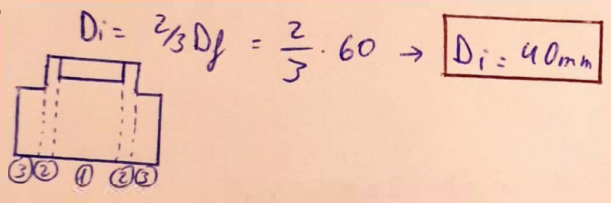 Di = 2/3 Df = 2/3 · 60 → Di = 40mm
3 2 1 2 3